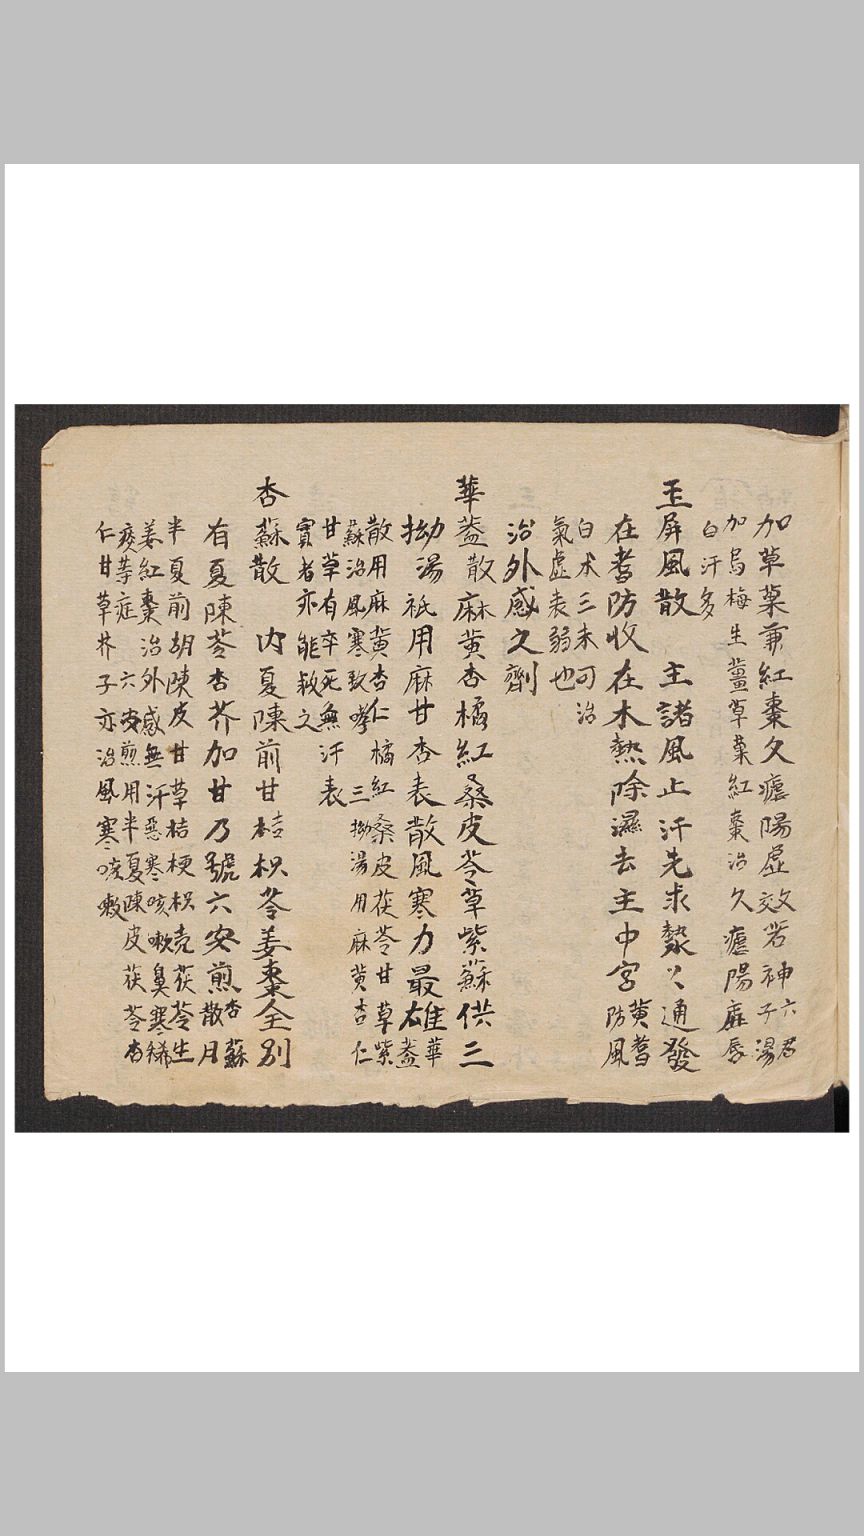 加草菓兼紅棗久瘧陽虛效若神六君
子湯
加烏梅生薑草菓紅棗治久瘧陽虛唇
白汗多
玉屏風散　主諸風止汗先求㪍丷通發
在耆防收在木熱除濕去主中宮黃蓍
防風
白术三末可治
氣虛表弱也
治外感之劑
華蓋散麻黃杏橘紅桑皮苓草紫蘇供三
拗湯祇用麻甘杏表散風寒力最雄華
蓋
散用麻黃杏仁橘紅桑皮茯苓甘草紫
蘇治風寒致哮　三拗湯用麻黃杏仁
甘草有卒死無汗表
實者亦能救之
杏蘇散　內夏陳前甘桔枳苓姜棗全別
有夏陳苓杏芥加甘乃號六安煎杏蘇
散月
半夏前胡陳皮甘草桔梗枳壳茯苓生
姜紅棗治外感無汗惡寒咳嗽鼻寒稀
痰等症　六安煎用半夏陳皮茯苓杏
仁甘草芥子亦治風寒咳嗽